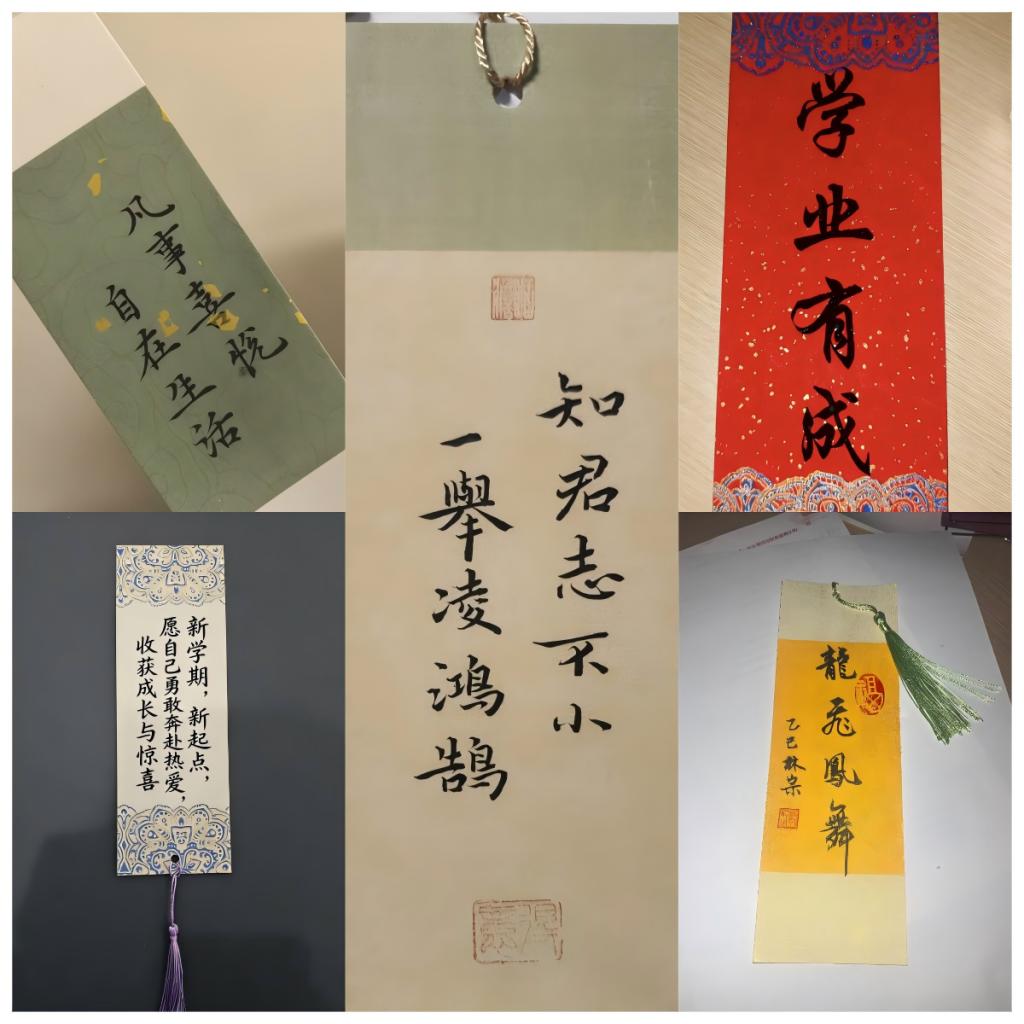 凡事喜悦
自在生活
知君志不小
一舉凌鴻鵠
学业有成
新学期，新起点，
愿自己勇敢奔赴热爱，
收获成长与惊喜
龍飛鳳舞
乙巳林宗